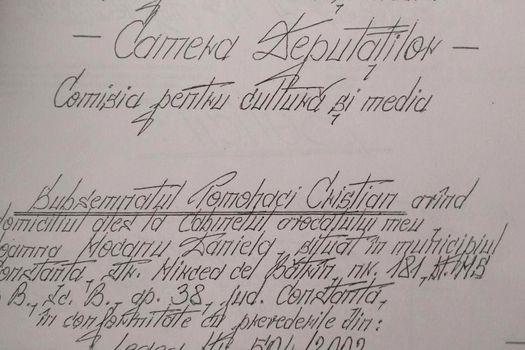 — Camera Deputaților —
Comisia pentru cultură și media
Subsemnatul Pomohaci Cristian avînd
domiciliul ales la Cabinetul avocatului meu,
Ioanna Mocanu Daniela, situat în municipiul
Constanța, str. Mircea cel Bătrîn, nr. 181,
B., Sc. B., ap. 38, jud. Constanța,
în conformitate cu prevederile din:
Legea Nr. 504/2002